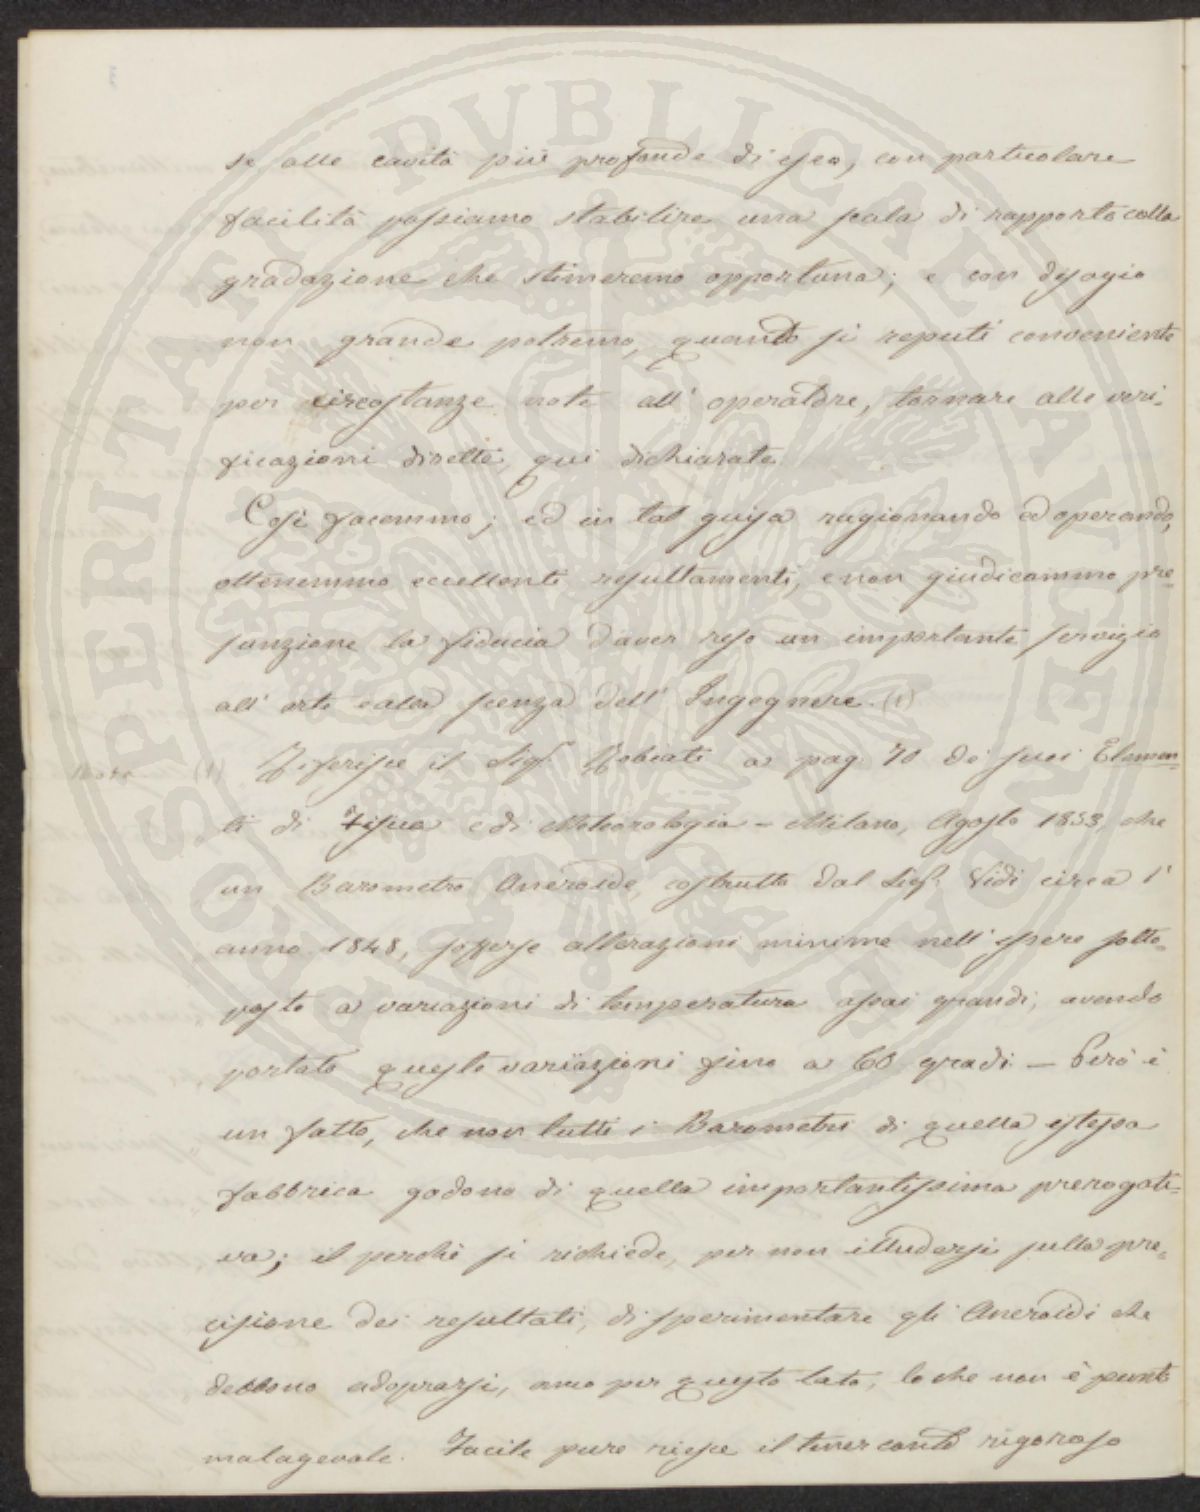 se alle cavità più profonde di esso, con particolare
facilità possiamo stabilire una scala di rapporto colla
gradazione che stimeremo opportuna; e con disagio
non grande potremo, quando si reputi conveniente
per circostanze note all' operatore, tornare alle veri-
ficazioni dirette, qui dichiarate.
Così facemmo; ed in tal guisa ragionando ed operando,
ottenemmo eccellenti resultamenti, e non giudicammo pre-
sunzione la fiducia d'aver reso un importante servizio
all' arte ed alla scienza dell' Ingegnere. (1)
Nota (1) Riferisce il Sigr. a pag. 70 de' suoi Elemen-
ti di Fisica e di Meteorologia - Milano, Agosto 1853, che
un Barometro Aneroide, costrutto dal Sigr. Vidi circa l'
anno 1848, sofferse alterazioni minime nell' essere sotto-
posto a variazioni di temperatura assai grandi, avendo
portato queste variazioni fino a 60 gradi. — Però è
un fatto, che non tutti i Barometri di quella istessa
fabbrica godono di quella importantissima prerogati-
va; il perchè si richiede, per non illudersi sulla pre-
cisione dei resultati, di sperimentare gli Aneroidi che
debbono adoprarsi, anco per questo lato, lo che non è punto
malagevole. Facile pure riesce il tener conto rigoroso
PROSPERITATI PVBLICAE AVGENDAE